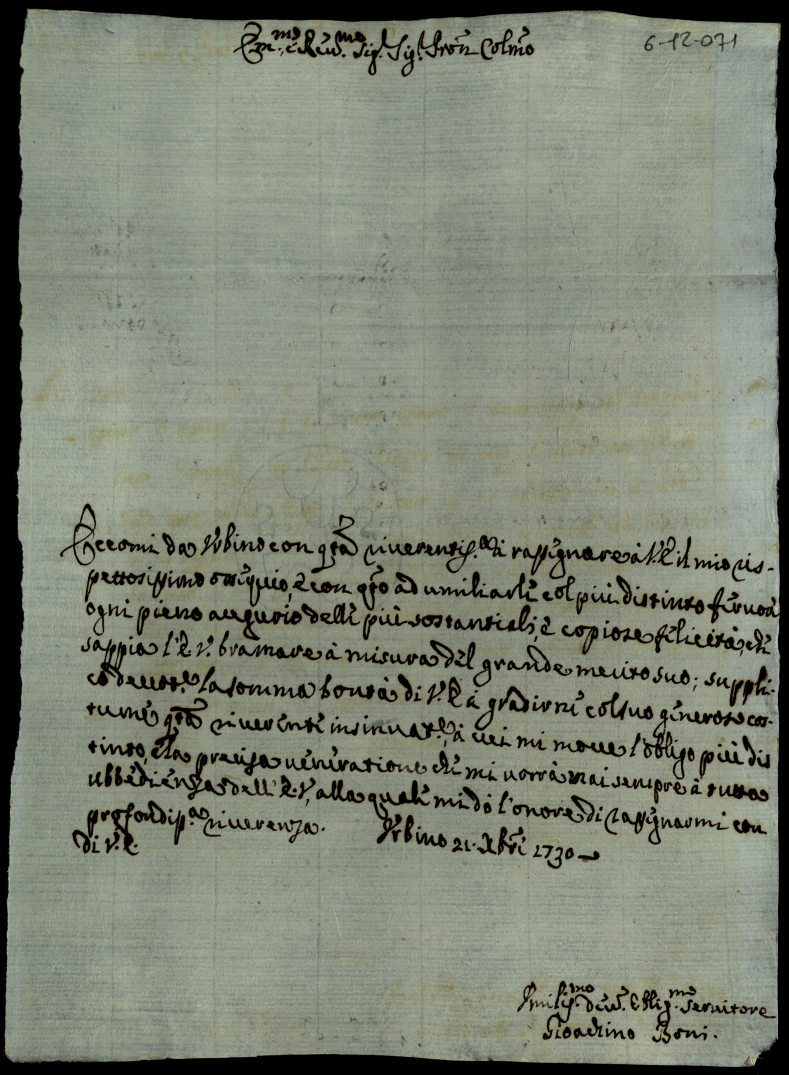 6-12-071
Em.mo, e Rev.mo Sig.r Sig.r Pron Colmo
Eccomi da Urbino con qta riverentis.ma di rassignare à V.E. il mio ris-
pettosissimo ossequio, e con qto ad umiliarle col più distinto fervore
ogni pieno augurio delle più sostantiali, e copiose felicità, che
sappia l'E.V. bramare à misura del grande merito suo; suppli-
co la somma bontà di V.E. à gradirne col suo generoso cos-
tume qta riverente à cui mi move l'obligo più dis
tinto, e la precisa veneratione che mi vorrà mai sempre à tutta
ubbedienza dell'E.V., alla quale mi dò l'onore di rassignarmi con
profondis.ma riverenza.
di V.E.
Urbino 21 Xbre 1730
Umilis.mo Dev. Oblig.mo Servitore
Gioachino Boni.